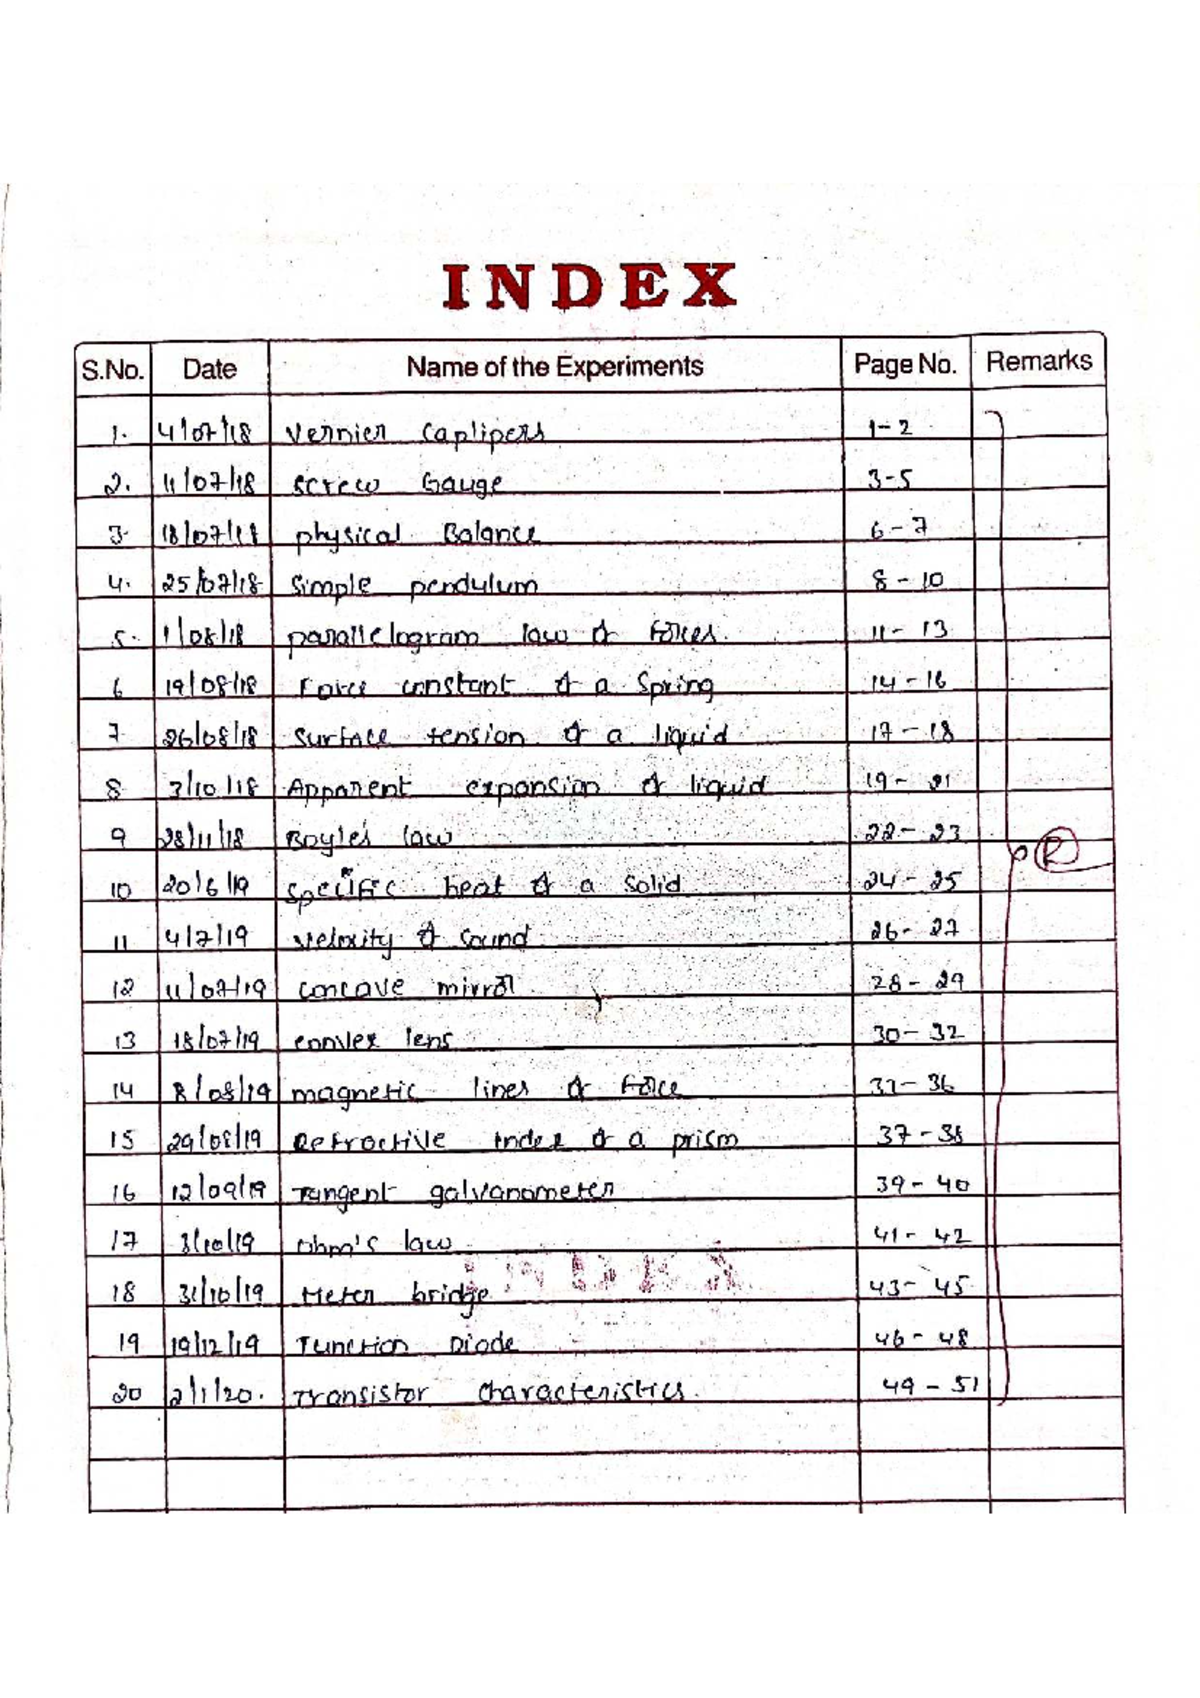 INDEX
S.No. Date Name of the Experiments Page No. Remarks
1. 4/07/18 Vernier Caplipers 1-2
2. 11/07/18 Screw Gauge 3-5
3. 18/07/18 physical Balance 6-7
4. 25/07/18 Simple pendulum 8-10
5. 1/08/18 parallelogram law of forces. 11-13
6 19/08/18 Force constant of a Spring 14-16
7 26/08/18 Surface tension of a liquid 17-18
8 3/10/18 Apparent expansion of liquid 19-21
9 28/11/18 Boyle's law 22-23
10 20/6/19 Specific heat of a solid 24-25
11 4/7/19 Velocity of sound 26-27
12 11/07/19 concave mirror 28-29
13 18/07/19 convex lens 30-32
14 8/08/19 magnetic lines of force 33-36
15 29/08/19 Refractive index of a prism 37-38
16 12/09/19 Tangent galvanometer 39-40
17 3/10/19 Ohm's law 41-42
18 31/10/19 Meter bridge 43-45
19 19/12/19 Junction Diode 46-48
20 2/1/20. Transistor characteristics. 49-51